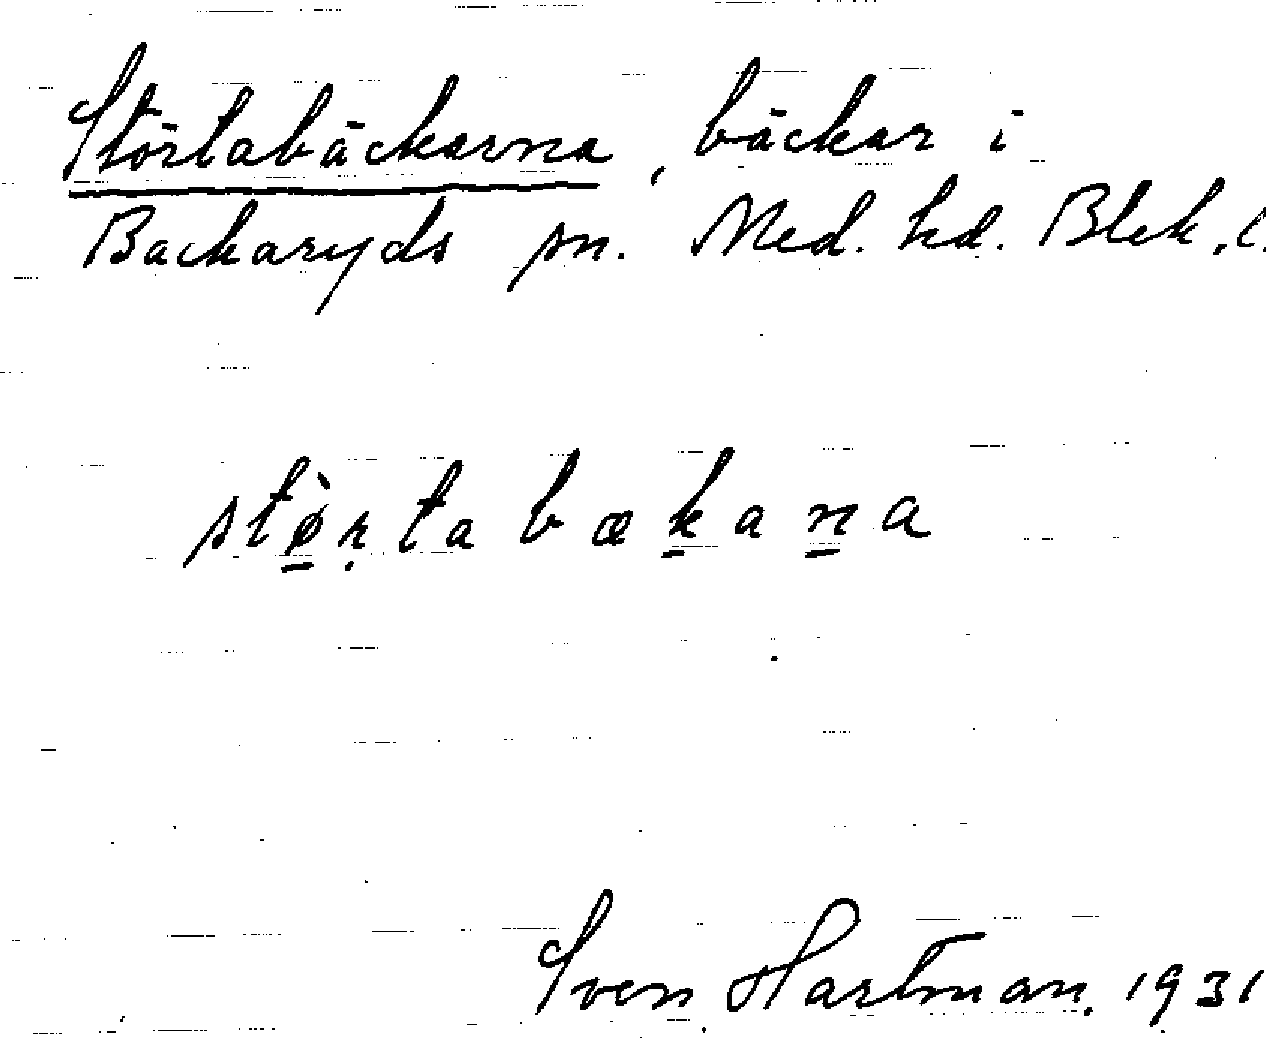 Störtabäckarna, bäckar i
Backaryds sn. Med. hd. Blek. l.
stø̀rta bækana
Sven Hartman. 1931